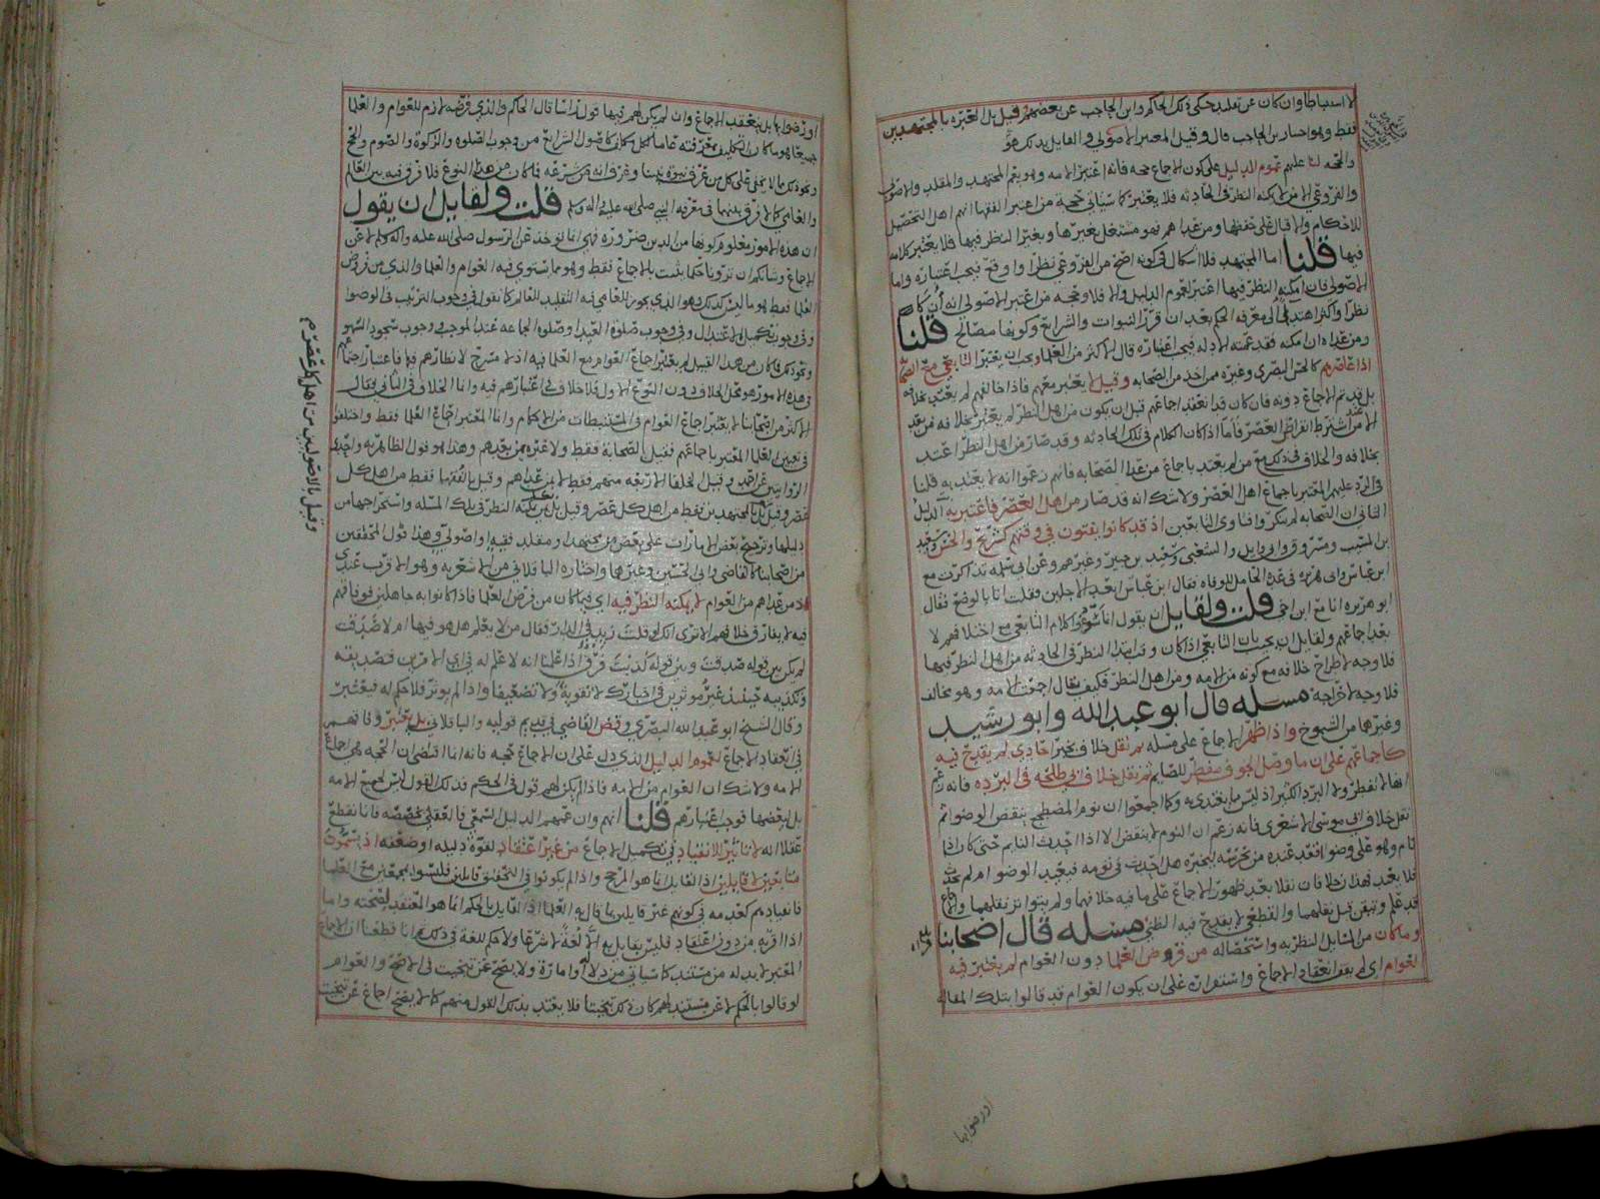 لا استنباطا وان كان عن تقليد حكى ذلك الحاكم وابن الحاجب عن بعضهم وقيل بل العبره بالمجتهدين
فقط وهو اختيار بن الحاجب قال وقيل المعتبر الاصولي والقايل بذلك هو
والحجه لنا عليهم عموم الدليل على كون الاجماع حجه فانه اعتبر الامه وهو يعم المجتهد والمقلد والاصولي
والفروعي الا من لا يمكنه النظر في الحادثه فلا يعتبر كما سياتي حجة من اعتبر الفقها انهم اهل التحصيل
للاحكام والاقبال على حفظها ومن عداهم فهو مشتغل بغيرها وبغير النظر فيها فلا يعتبر كلامه
فيها قلنا اما المجتهد فلا اشكال في كونه اصح من الفروعي نظرا واوقع فيجب اعتباره واما
الاصولي فان امكنه النظر فيها اعتبر لعموم الدليل والا فلا وحجه من اعتبر الاصولي انه
نظرا واكثر اهتدا الى معرفه الحكم بعد ان قرر النبوات والشرايع وكونها مصالح قلنا
ومن عداه ان مكنه فقد عمته الادله فيجب اعتباره قال الاكثر من العلما ويجب ان يعتبر التابعي مع الصحابه
اذا عاصرهم كالحسن البصري وغيره ممن اخذ من الصحابه وقيل لا يعتبر معهم فاذا خالفهم لم يعتد بخلافه
بل قد تم الاجماع دونه فان كان قد انعقد اجماعهم قبل ان يكون من اهل النظر لم يعتبر بخلافه من بعد
الا عند من اشترط انقراض العصر فاما اذا كان الكلام في تلك الحادثه وقد صار من اهل النظر اعتد
بخلافه والخلاف في ذلك مع من لم يعتد باجماع من عدا الصحابه فانهم زعموا انه لا يعتد به قلنا
في الرد عليهم المعتبر باجماع اهل العصر ولا شك انه قد صار من اهل العصر فاعتبر به الدليل
الثاني ان الصحابه لم ينكروا فتاوى التابعين اذ قد كانوا يفتون في وقتهم كشريح والحسن وسعيد
بن المسيب ومسروق وابي وايل والشعبي وسعيد بن جبير وغيرهم وعن ابي سلمه تذاكرت مع
ابن عباس وابي هريره في عدة الحامل للوفاه فقال ابن عباس ابعد الاجلين وقلت انا بالوضع فقال
ابو هريره انا مع ابن اخي قلت ولقايل ان يقول انا كلام التابعي مع اختلافهم لا
بعد اجماعهم ولقايل ان يجيب بان التابعي اذا كان وقت ابتدا النظر في الحادثه من اهل النظر فيها
فلا وجه لاطراح خلافه مع كونه من الامه ومن اهل النظر فكيف يقال اجمعت الامه وهو مخالف
فلا وجه لاخراجه مسئله قال ابو عبد الله وابو رشيد
وغيرها من الشيوخ واذا ظهر الاجماع على مسئله ثم نقل خلاف بخبر احادي لم يقدح فيه
كاجماعهم على ان ما وصل الجوف مفطر للصايم ثم نقل خلاف ابي طلحه في البرده فانه زعم
انها لا تفطر ولا البرد الكثير اذ ليس مما يغتدى به وكما اجمعوا ان نوم المضطجع ينقض الوضو ثم
نقل خلاف ابي موسى الاشعري فانه زعم ان النوم لا ينقض الا اذا احدث النايم حتى كان اذا
نام وهو على وضو اقعد عنده من يحرسه ليخبره هل احدث في نومه فيعيد الوضو ام لم يحدث
فلا يعيد فهذان خلافان نقلا بعد ظهور الاجماع على ما فيه خلافهما ولم يتواتر نقلهما والاجماع
قد علم وتيقن قبل نقلهما والقطعي لا يقدح فيه الظني مسئله قال اصحابنا
وما كان من المسايل النظريه واستحصاله من فروض العلما دون العوام لم يعتبر فيه
العوام اي لم يقف انعقاد الاجماع واستقراره على ان يكون العوام قد قالوا بتلك المقاله
او رضوا بها
او رضوا بها بل ينعقد الاجماع وان لم يكن لهم فيها قول راسا قال الحاكم والذي فرضه لازم للعوام والعلما
جميعا هو ما كان التكليف بمعرفته عاما لكل مكلف كاصول الشرايع من وجوب الصلوه والزكوة والصوم والحج
ونحو ذلك مما لا يخفى على كل من عرف نبوة نبينا وعرف انه من شرعه فما كان من هذا النوع فلا فرق فيه بين العالم
والعامي كما لا فرق بينهما في معرفه النبي صلى الله عليه واله وسلم قلت ولقايل ان يقول
ان هذه الامور معلوم كونها من الدين ضروره فهي انما توخذ عن الرسول صلى الله عليه واله وسلم لا عن
الاجماع وشانكم ان تورونا حكما يثبت بالاجماع فقط وهو مما يستوي فيه العوام والعلما والذي من فروض
العلما فقط هو ما ليس كذلك وهو الذي يجوز للعامي فيه التقليد للعالم كما نقول في وجوب الترتيب في الوضو
وفي وجوب تكميل الاعتدال وفي وجوب صلوة العيد وصلوة الجماعه عند الموجب ووجوب سجود السهو
ونحو ذلك فما كان من هذا القبيل لم يعتبر اجماع العوام مع العلما فيه اذ لا مسرح لانظارهم فيها
في هذه الامور هو محل الخلاف دون النوع الاول فلا خلاف في اعتبارهم فيه وانما الخلاف في الثاني فقال
الاكثر من اصحابنا لا يعتبر اجماع العوام في المستنبطات من الاحكام وانما المعتبر اجماع العلما فقط واختلفوا
في تعيين العلما المعتبر باجماعهم فقيل الصحابة فقط ولا عبرة بمن بعدهم وهذا هو قول الظاهريه واحدى
الروايتين عن احمد وقيل الخلفا الاربعه منهم فقط لا من عداهم وقيل بالفقها فقط من اهل كل
عصر وقيل بالمجتهدين فقط من اهل كل عصر وقيل بل بمن يمكنه النظر في تلك المسئله واستخراجها من
دليلها وترجيح بعض الامارات على بعض من مجتهد او مقلد فقيه او اصولي وهذا قول المحققين
من اصحابنا كالقاضي وابي الحسين وغيرهما واختاره الباقلاني من الاشعريه وهو الاقرب عندي
اذ من عداهم من العوام لا يمكنه النظر فيه اي فيما كان من فروض العلما فاذا كانوا به جاهلين فوفاقهم
فيه لا يفارق خلافهم الا ترى انك لو قلت زيد في الدار فقال من لا يعلم هل هو فيها ام لا صدقت
لم يكن بين قوله صدقت وبين قوله كذبت فرق اذا علمنا انه لا علم له في اي الامرين فتصديقه
وتكذيبه حينئذ غير موثرين في اخبارك لا تقوية ولا تضعيفا واذا لم يوثر فلا حكم له فيعتبر
وقال الشيخ ابو عبد الله البصري وقاضي القضاة في قديم قوليه والباقلاني بل يعتبر وفاقهم
في انعقاد الاجماع لعموم الدليل الذي دل على ان الاجماع حجه فانه انما اقتضى ان الحجه هي اجماع
الامه ولا شك ان العوام من الامه فاذا لم يكن لهم قول في الحكم فذلك القول ليس لجميع الامه
بل لبعضها فوجب اعتبارهم قلنا انهم وان عمهم الدليل السمعي فالعقلي مخصصه فانا نقطع
عقلا انه لا تاثير للانقياد في تكميل الاجماع من غير اعتقاد لقوة دليله او ضعفه اذ يسمون
متابعين لا قايلين اذ القايل انما هو المرجح واذا لم يكونوا في التحقيق قايلين فليسوا بمجمعين مع العلما
فانقيادهم كعدمه في كونهم غير قايلين بما قال به العلما اذ القايل بالحكم انما هو المعتقد لصحته واما
اذا اقر به من دون اعتقاد فليس بقايل به لا لغة لا شرعا ولا حكم للغة في ذلك وانا قطعنا ان الاجماع
المعتبر لا بد له من مستند كما سياتي من دلاله او امارة ولا يصح عن تبخيت في الاصح والعوام
لو قالوا بالحكم لا عن مستند لهم كان ذلك تبخيتا فلا يعتد بذلك القول منهم كما لا يصح اجماع عن تبخيت
وقيل بالاصوليين من اهل كل عصر